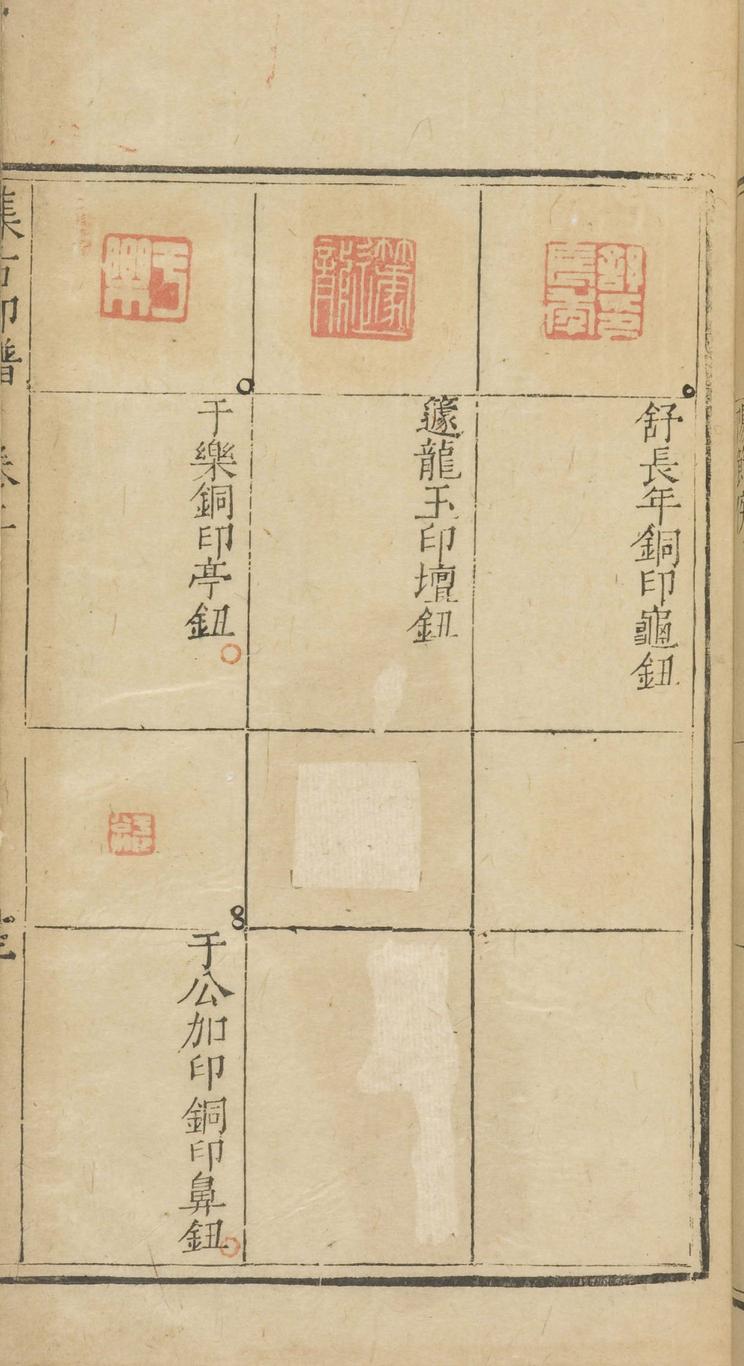 舒長年
舒長年銅印龜鈕
籧龍
籧龍玉印壇鈕
于樂
于樂銅印亭鈕
于公加印銅印鼻鈕
集古印譜
卷二